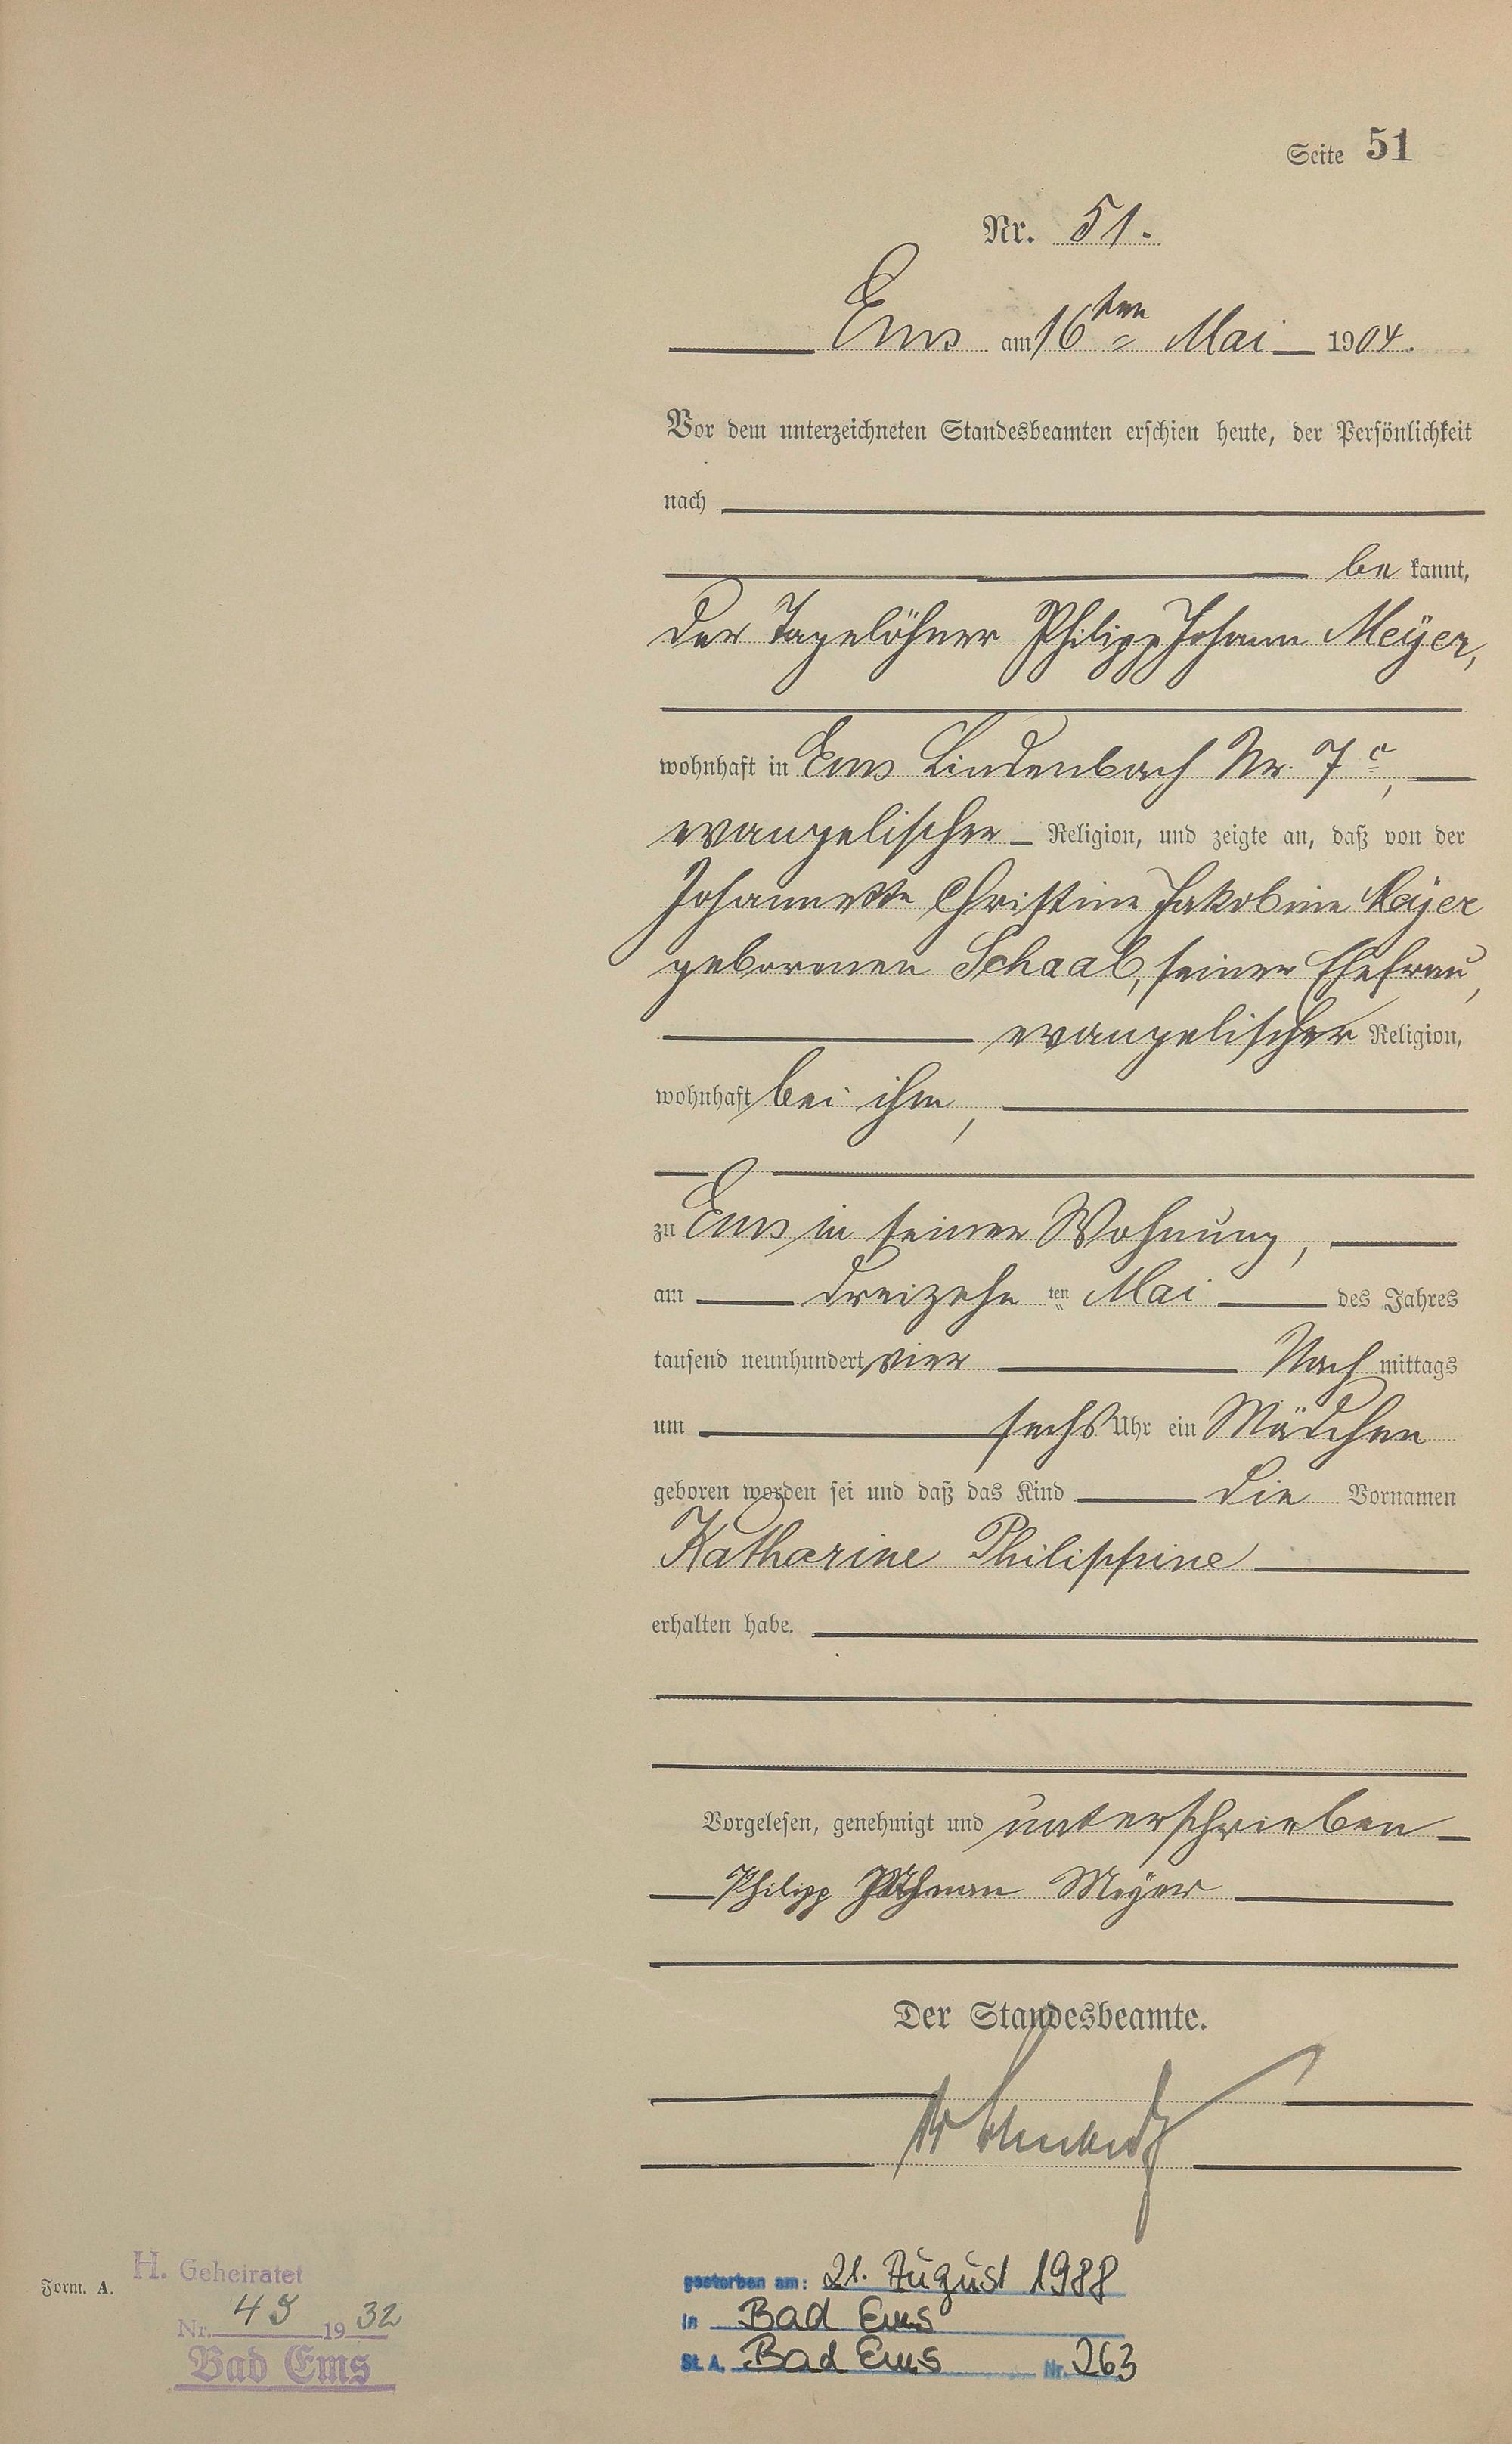 Seite 51
Nr. 51.
Ems am 16ten Mai 1904.
Vor dem unterzeichneten Standesbeamten erschien heute, der Persönlichkeit
nach
be kannt,
der Tagelöhner Philipp Johann Meÿer,
wohnhaft in Ems Lindenbach Nr. 7c,
evangelischer Religion, und zeigte an, daß von der
Johannette Christine Jakobine Meÿer
geborenen Schaab, seiner Ehefrau,
evangelischer Religion,
wohnhaft bei ihm,
zu Ems in seiner Wohnung,
am dreizehn ten Mai des Jahres
tausend neunhundert vier Nach mittags
um sechs Uhr ein Mädchen
geboren worden sei und daß das Kind die Vornamen
Katharine Philippine
erhalten habe.
Vorgelesen, genehmigt und unterschrieben
Philipp Johann Meÿer
Der Standesbeamte.
Form. A.
H. Geheiratet
Nr. 49 1932
Bad Ems
gestorben am: 21. August 1988
in Bad Ems
St. A. Bad Ems Nr. 263